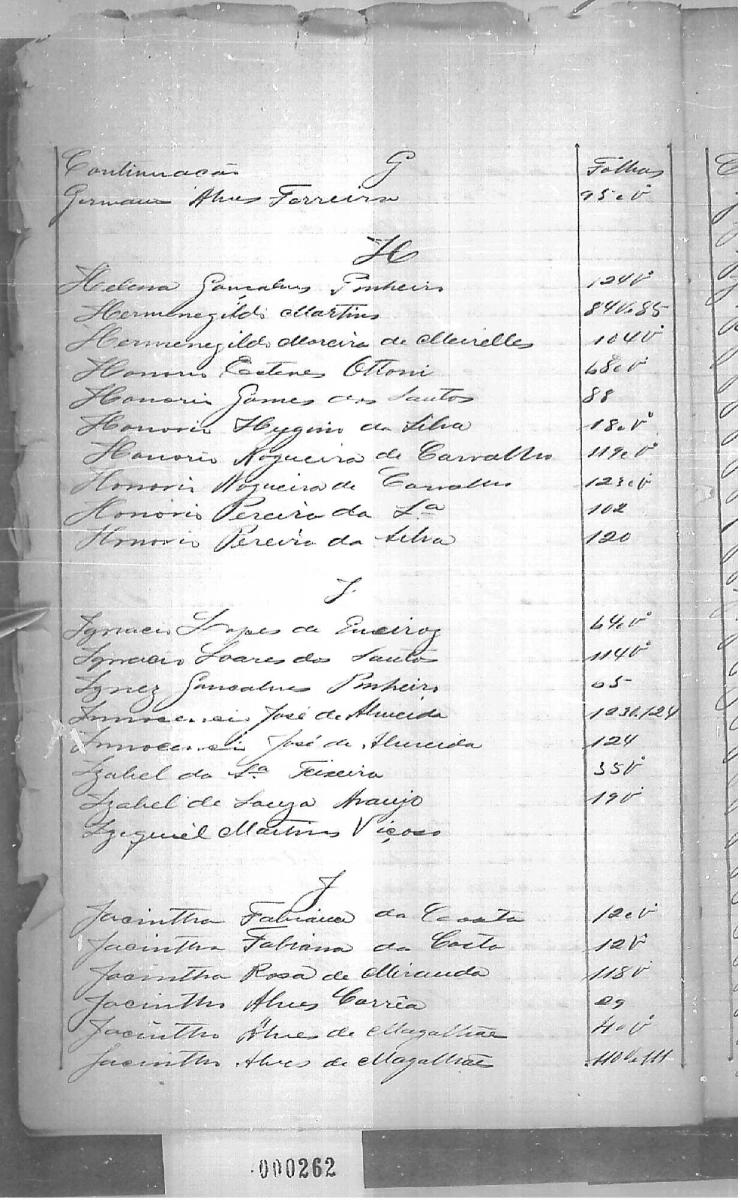 Continuação G Folhas
Germano Alves Ferreira 95 v
H
Helena Gonçalves Pinheiro 124 v
Hermenegildo Martins 84 v. 85
Hermenegildo Moreira de Meirelles 104 v
Honorio Esteves Ottoni 68 v
Honorio Gomes dos Santos 88
Honorio Hygino da Silva 18 v
Honorio Nogueira de Carvalho 119 v
Honorio Nogueira de Carvalho 123 v
Honorio Pereira da Sª 102
Honorio Pereira da Silva 120
I
Ignacio Lopes de Queiroz 64 v
Ignacio Soares dos Santos 114 v
Ignez Gonçalves Pinheiro 05
Innocencio José de Almeida 123 v. 124
Innocencio José de Almeida 124
Izabel da Sª Teixeira 35 v
Izabel de Souza Araujo 19 v
Izequiel Martins Viçoso
J
Jacintha Fabiana da Costa 12 v
Jacintha Fabiana da Costa 12 v
Jacintha Rosa de Miranda 118 v
Jacintho Alves Corrêa 09
Jacintho Alves de Magalhães 40 v
Jacintho Alves de Magalhães 110 v. 111
000262